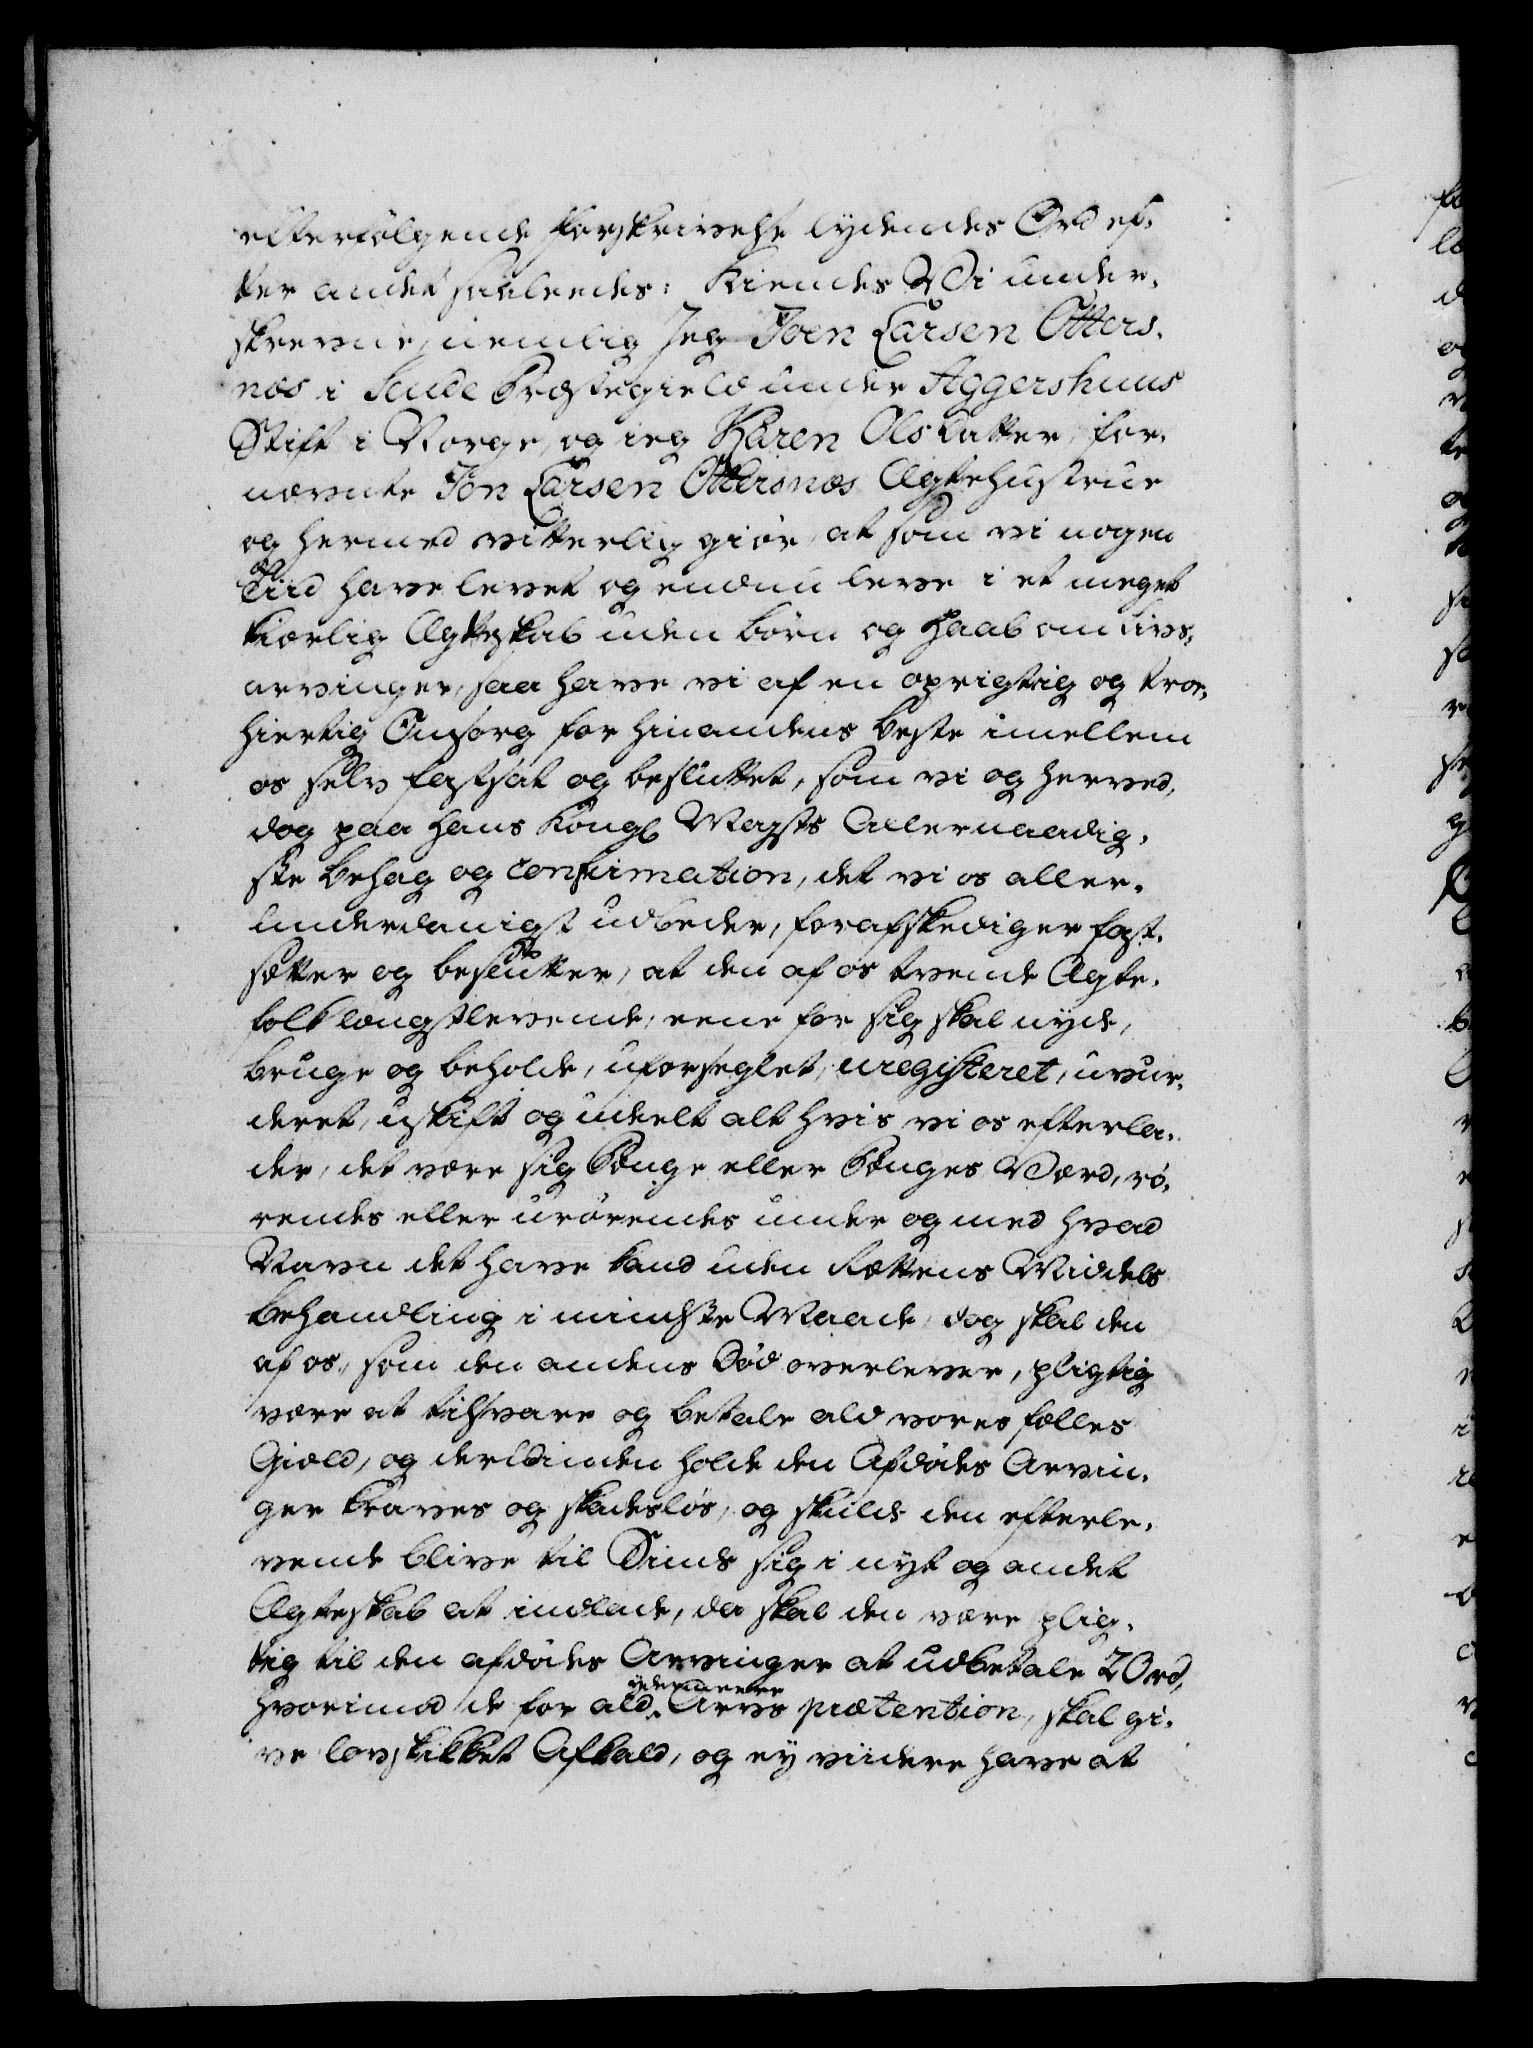 efterfølgende forskrivelse lydendes Ord ef-
ter andet saaledes: Kiendes Vi under-
skrevne, nemlig Jeg Joen Larsen Otters-
næs i Saude Præstegield under Aggershuus
Stift i Norge, og ieg Karen Olsdatter, for-
nævnte Jon Larsen Ottersnæs Ægtehustrue
og hermed vitterlig giøre, at som vi nogen
Tiid have levet og endnu leve i et meget
kiærlig Ægteskab uden børn og haab om livs-
arvinger, saa have vi af en oprigtig og tro-
hiertig Omsorg for hinandens beste imellem
os selv fastsat og besluttet, som vi og herved,
dog paa Hans Kongl Mayts Allernaadig-
ste behag og confirmation, det vi os aller-
underdanigst udbeder, forafskediger fast-
sætter og beslutter, at den af os tvende Ægte-
folk længstlevende, eene for sig skal nyde,
bruge og beholde, uforseglet, uregisteret, uvur-
deret, uskift og udeelt alt hvis vi os efterla-
der, det være sig Penge eller Penges Værd, rø-
rendes eller urørendes under og med hvad
Navn det have kand uden Rettens Middels
behandling i mindste Maade, dog skal den
af os, som den andens Død overlever, pligtig
være at tilsvare og betale ald vores fælles
Gield, og derudinden holde den Afdødes Arvin-
ger kraves og skadesløs, og skulde den efterle-
vende blive til Sinds sig i nyt og andet
Ægteskab at indlade, da skal den være plig-
tig til den afdødes Arvinger at udbetale 20 rd,
hvorimod de for ald ydermeere Arvs prætention, skal gi-
ve lovskikket Afkald, og ey viidere have at